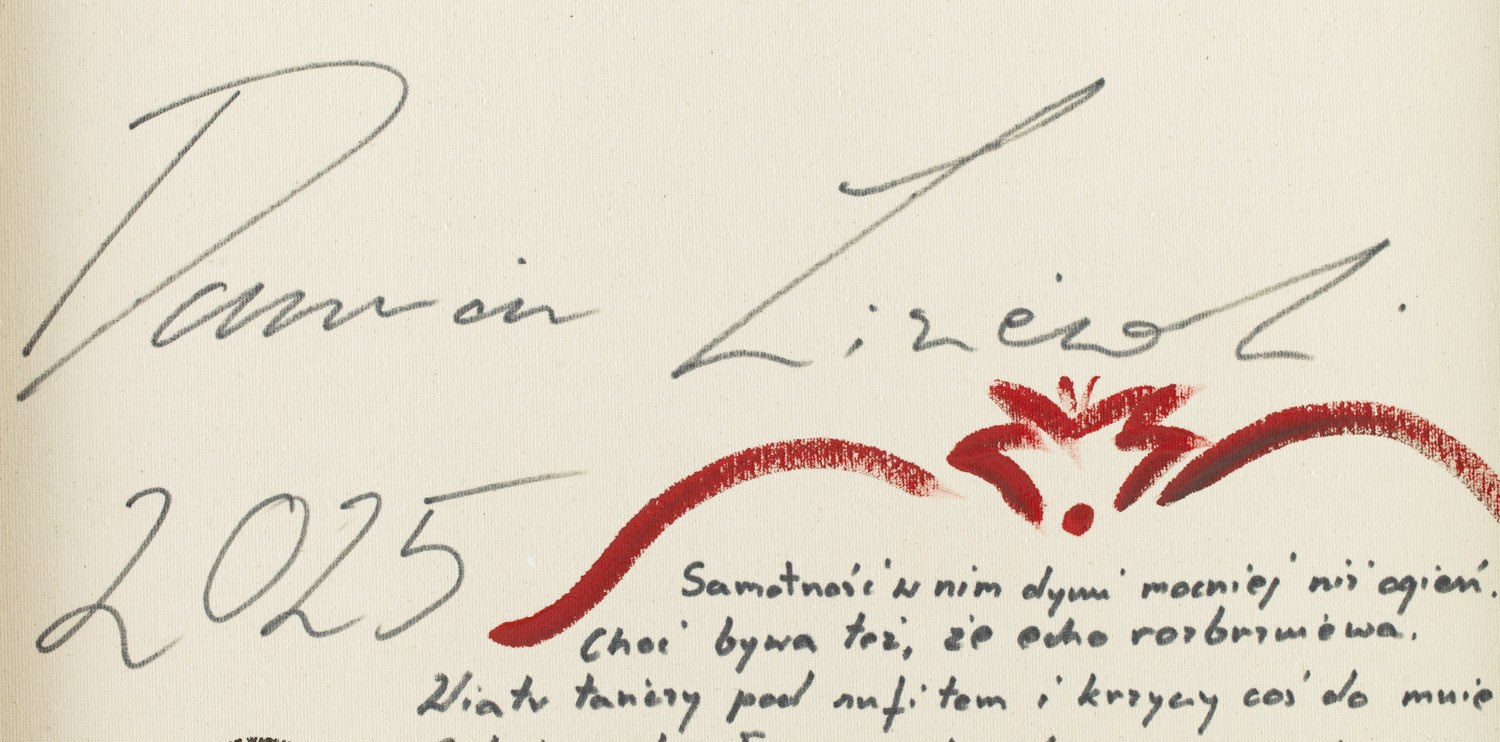 Damian
2025
Samotność w nim dymi mocniej niż ogień.
Choć bywa też, że echo rozbrzmiewa.
Wiatr tańczy pod sufitem i krzyczy coś do mnie